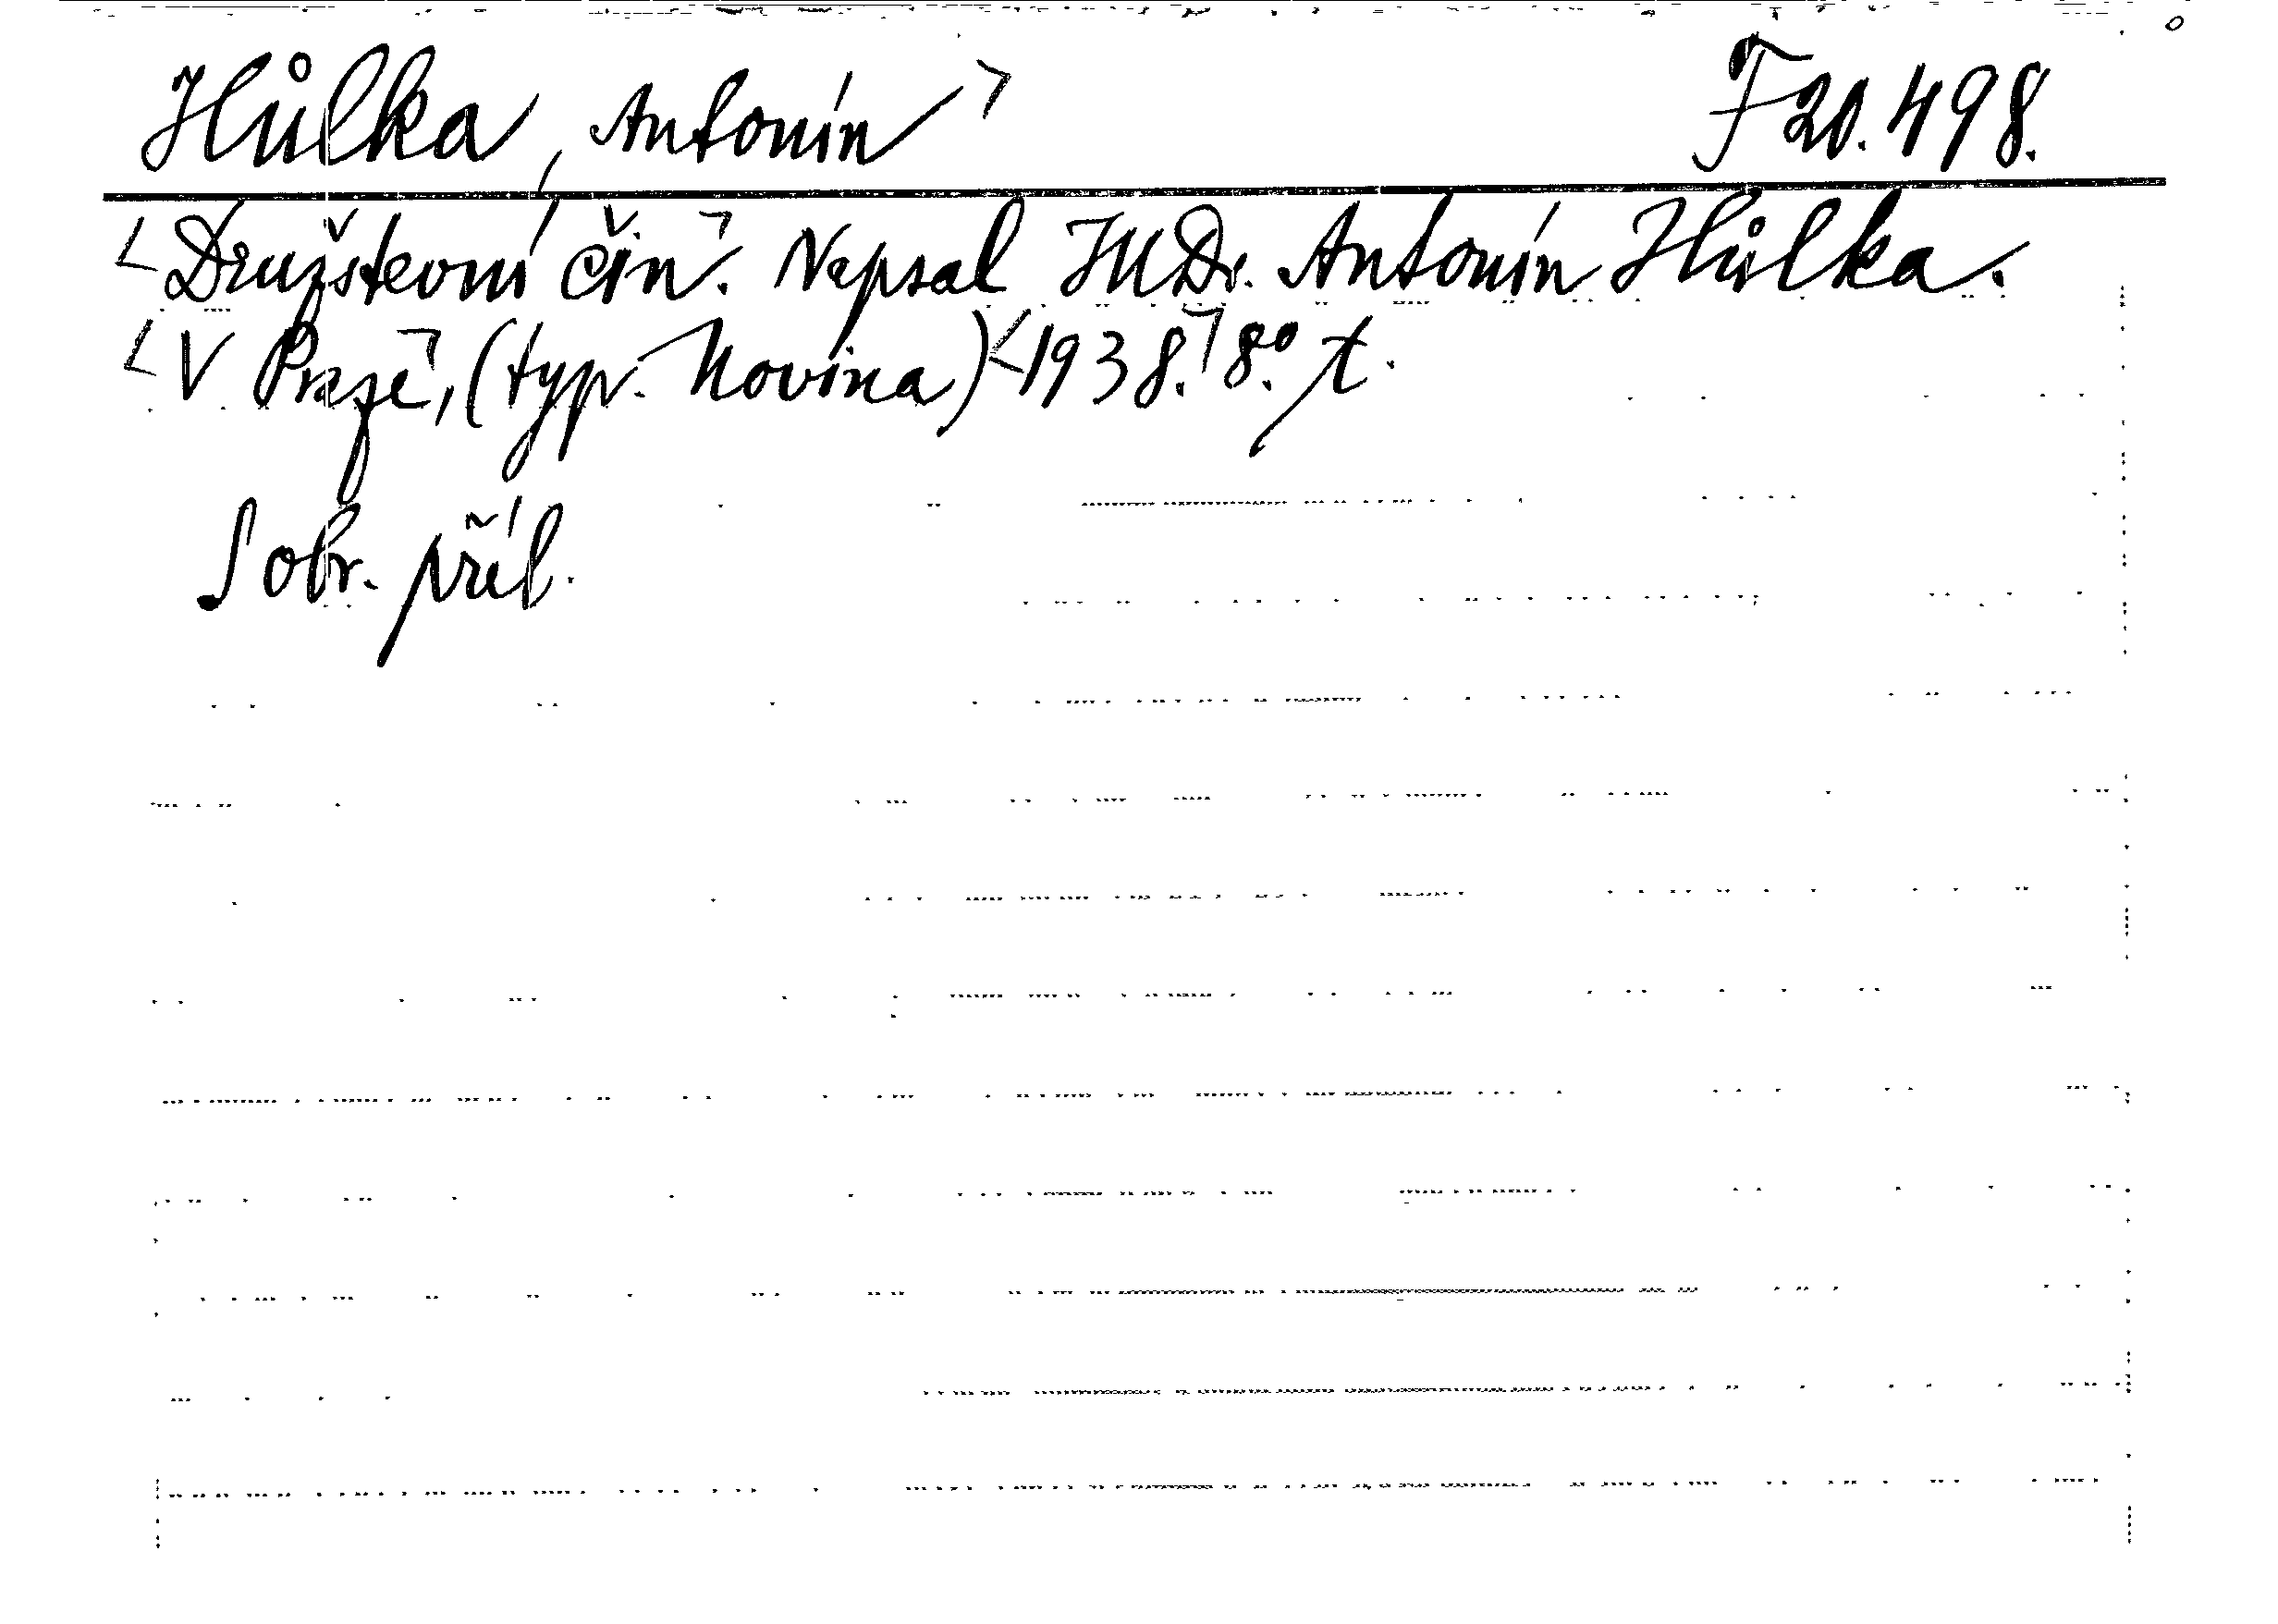 Hůlka, Antonín F 20.498.
Družstevní čin. Napsal JUDr. Antonín Hůlka.
V Praze, (typ. Novina) 1938. 8° t.
S obr. příl.